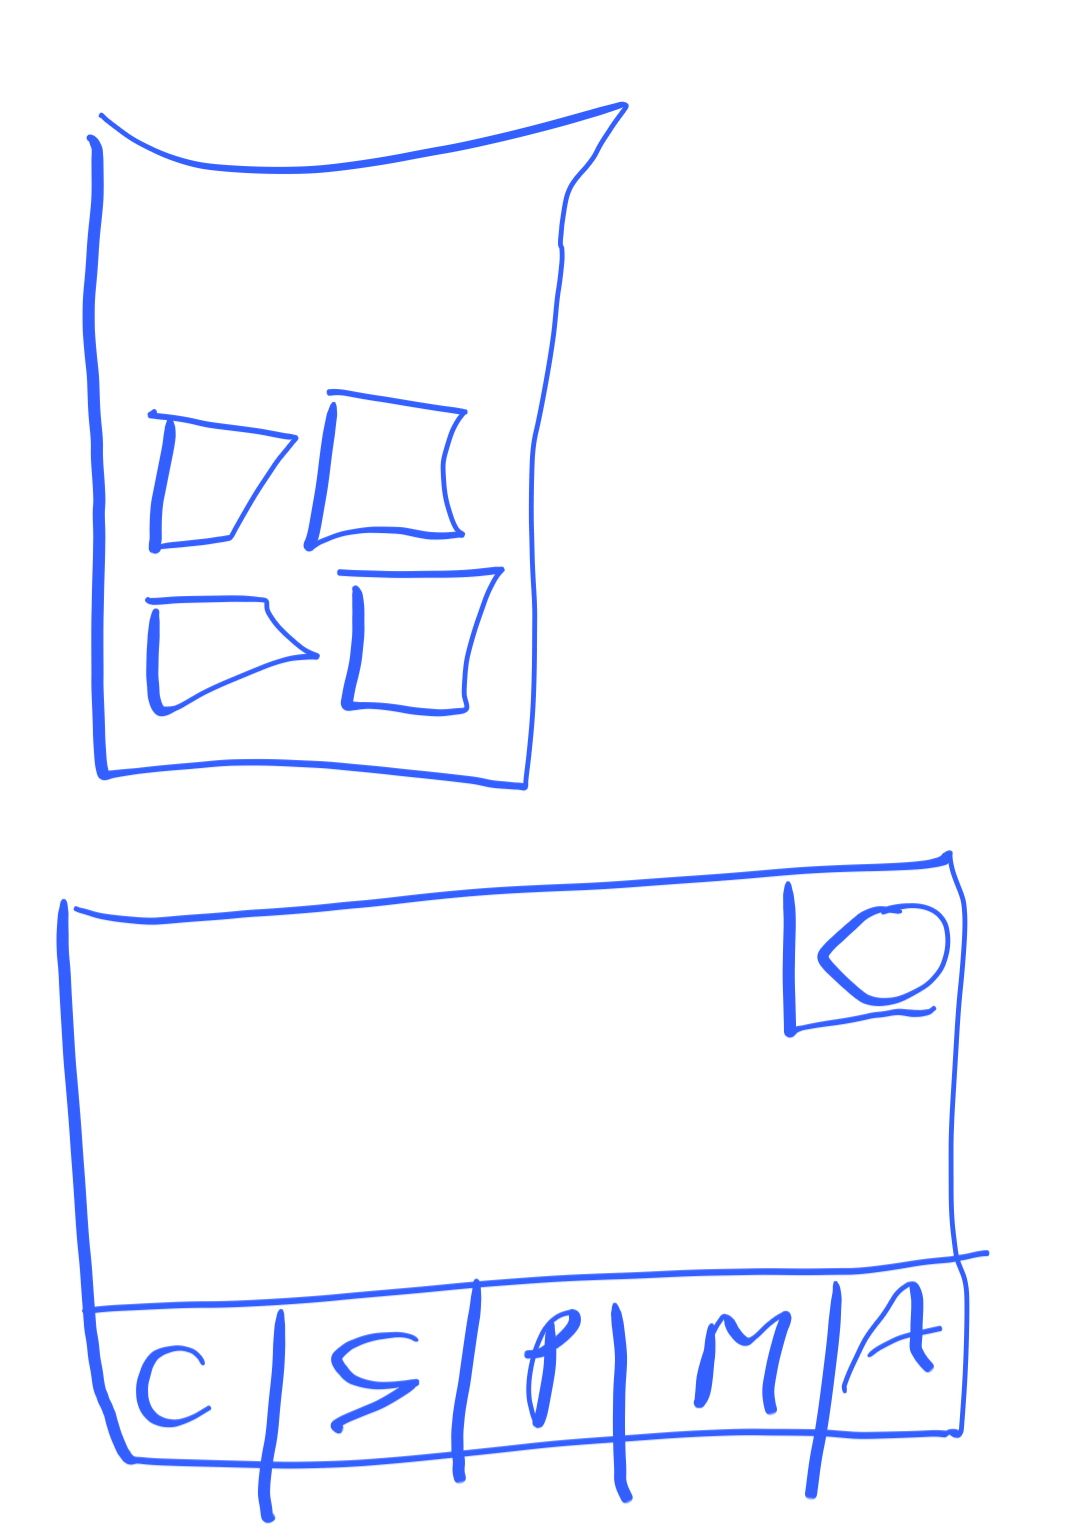 C S P M A